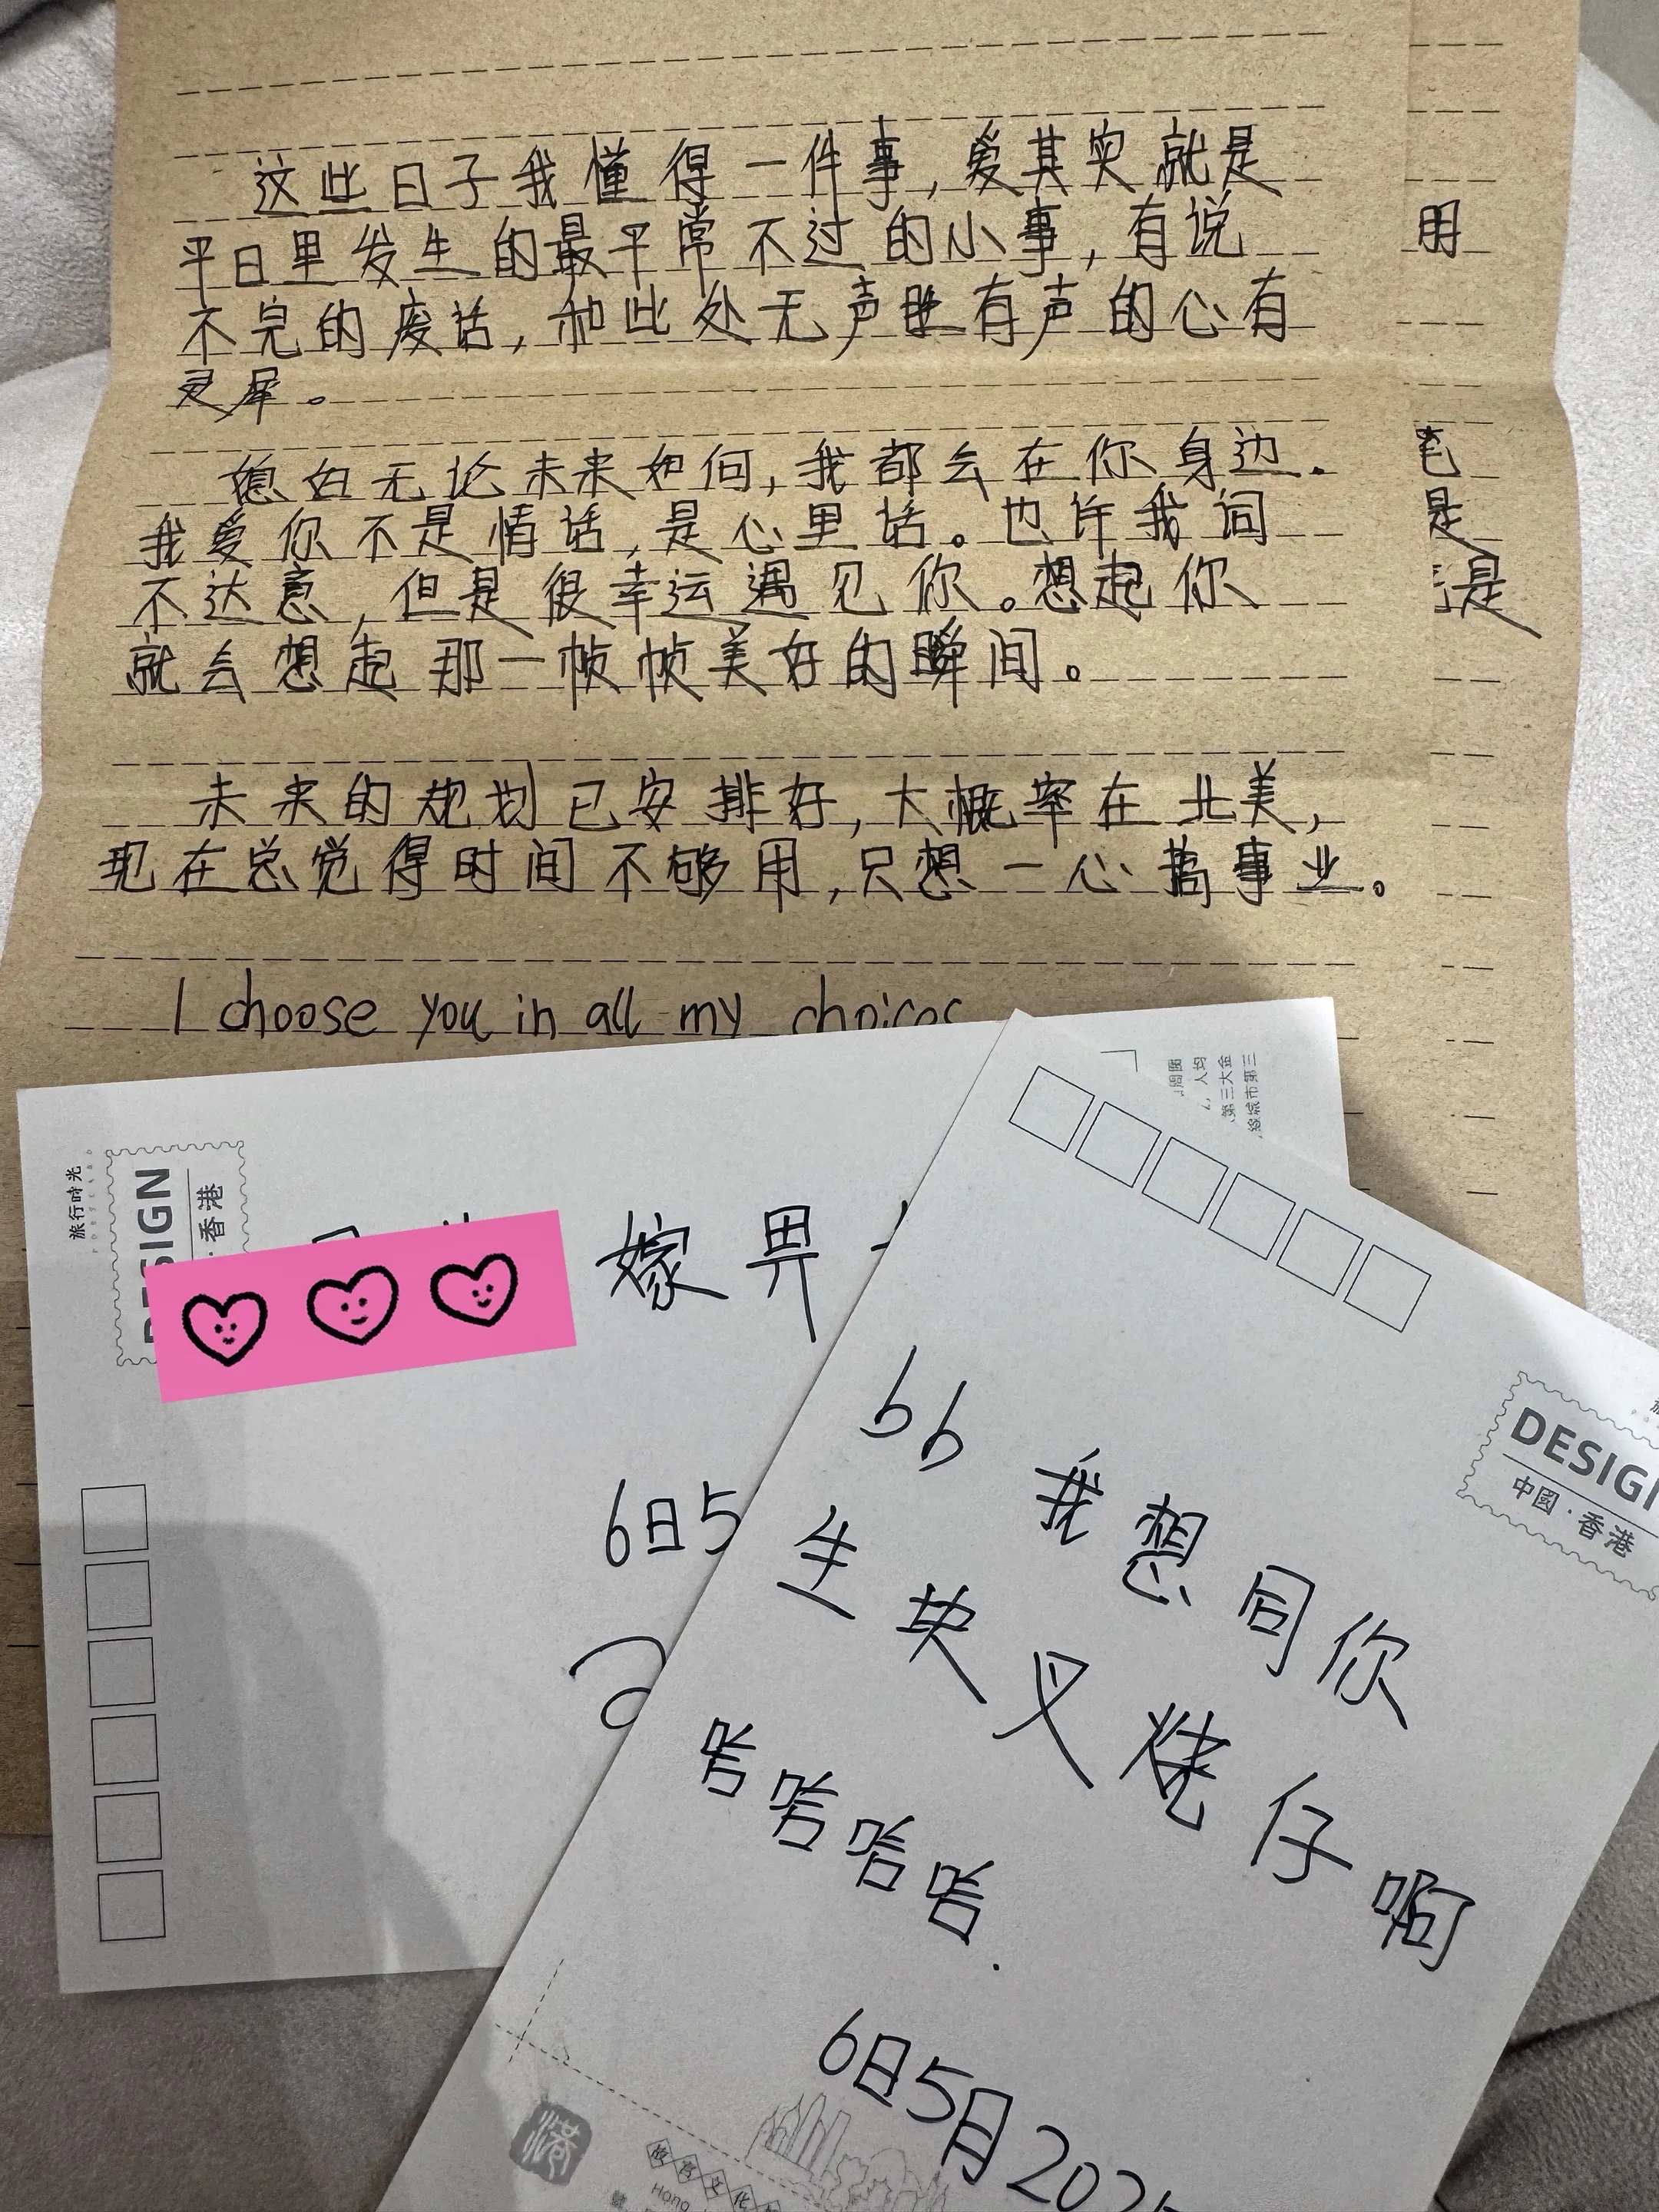 这些日子我懂得一件事,爱其实就是
平日里发生的最平常不过的小事,有说
不完的废话,和此处无声胜有声的心有
灵犀。
媳妇无论未来如何,我都会在你身边.
我爱你不是情话,是心里话。也许我词
不达意,但是很幸运遇见你。想起你
就会想起那一帧帧美好的瞬间。
未来的规划已安排好,大概率在北美,
现在总觉得时间不够用,只想一心搞事业。
I choose you in all my choices
用
是
是
旅行時光
POSTCARD
DESIGN
·香港
嫁畀
6日5
第三大金
bb 我想同你
生块叉烧仔啊
哈哈哈哈.
6日5月202
DESIG
中國·香港
港